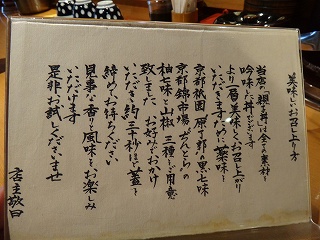 美味しいお召し上り方
当店の「親子丼」は全ての素材を
吟味した丼でございます
より一層美味しくお召し上がり
いただけます為に薬味として
京都祇園 原了郭の黒七味
京都錦市場 ぢんとらの
柚七味と山椒 三種をご用意
致しました お好みでおかけ
いただき約三十秒ほど蓋を
締めてお待ちください
見事な香りと風味をお楽しみ
いただけます
是非お試しくださいませ
店主敬白